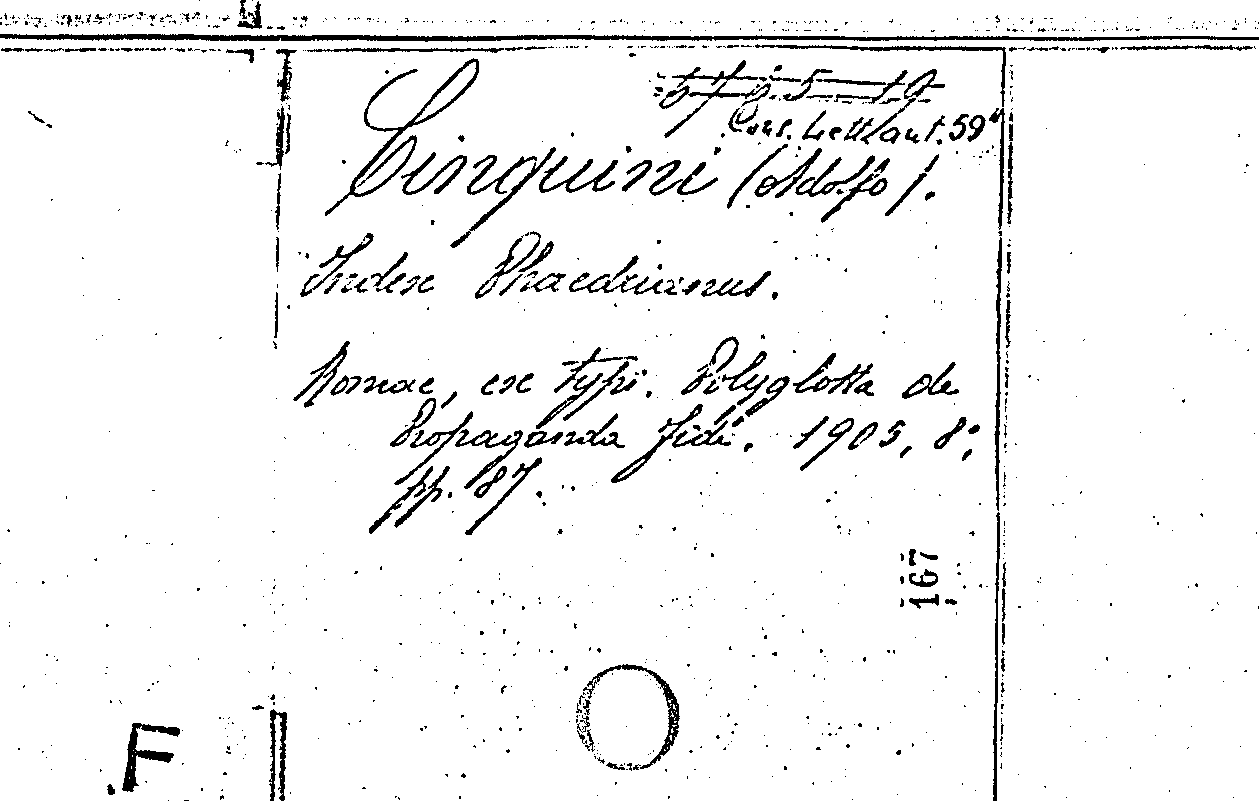 Cons. Lett. aut. 59ª
Cinquini (Adolfo).
Index Phaedrianus.
Romae, ex typ. Polyglotta de
Propaganda Fide. 1905, 8º,
pp. 87.
167
F